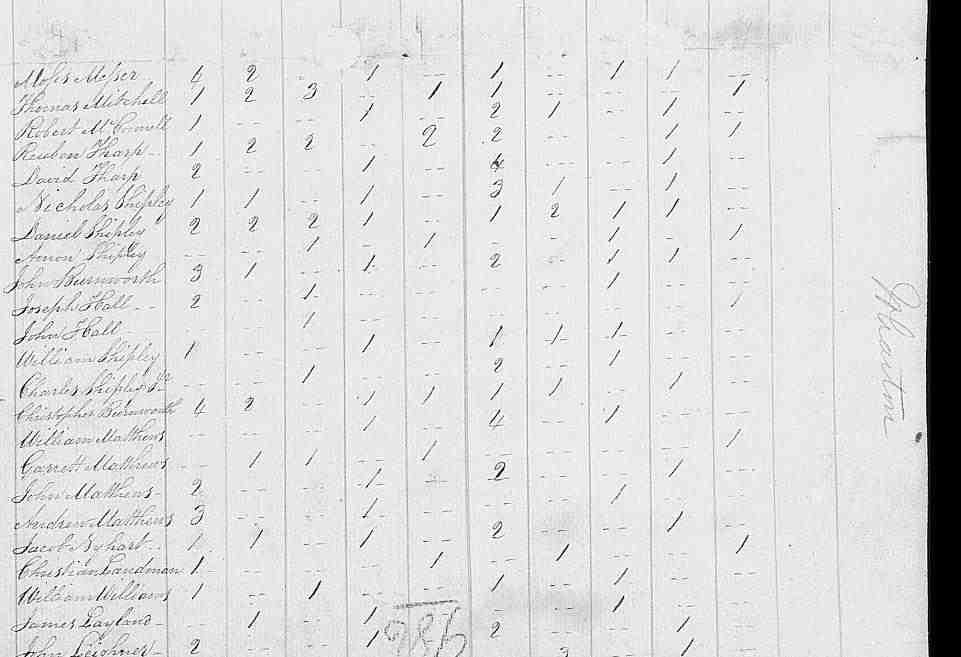 Moses Messer 4 2 -- 1 -- 1 -- 1 1 --
Thomas Mitchell 1 2 3 -- 1 1 -- -- -- 1
Robert McConnell 1 -- -- 1 -- 2 1 -- 1 --
Reuben Tharp 1 2 2 -- 2 2 -- -- 1 1
David Tharp 2 -- -- 1 -- 4 -- -- 1 --
Nicholas Shipley 1 1 -- 1 -- 3 1 -- 1 --
Daniel Shipley 2 2 2 1 -- 1 2 1 1 --
Amon Shipley -- -- 1 - 1 - -- 1 -- 1
John Burnworth 3 1 -- 1 -- 2 -- 1 1 --
Joseph Hall 2 -- 1 -- -- -- -- 1 -- 1
John Hall -- -- 1 -- -- -- -- -- -- --
William Shipley 1 -- -- 1 -- 1 1 1 -- --
Charles Shipley Jr -- -- 1 -- -- 2 -- 1 -- --
Christopher Burnworth 4 2 -- 1 1 1 1 -- 1 --
William Matthews -- -- -- 1 -- 4 -- 1 -- --
Garrett Matthews -- 1 1 -- 1 -- -- -- -- 1
John Matthews 2 -- -- 1 -- 2 -- -- 1 --
Andrew Matthews 3 -- -- 1 -- -- -- 1 -- --
Jacob Nyhart 1 1 -- 1 -- 2 -- -- 1 --
Christian Landman 1 -- -- -- 1 -- 1 -- -- 1
William Williams 1 -- 1 -- -- 1 -- 1 -- --
James Layland -- 1 -- 1 -- -- -- 1 -- --
John Leighner 2 -- -- 1 -- 2 -- -- 1 --
Wharton